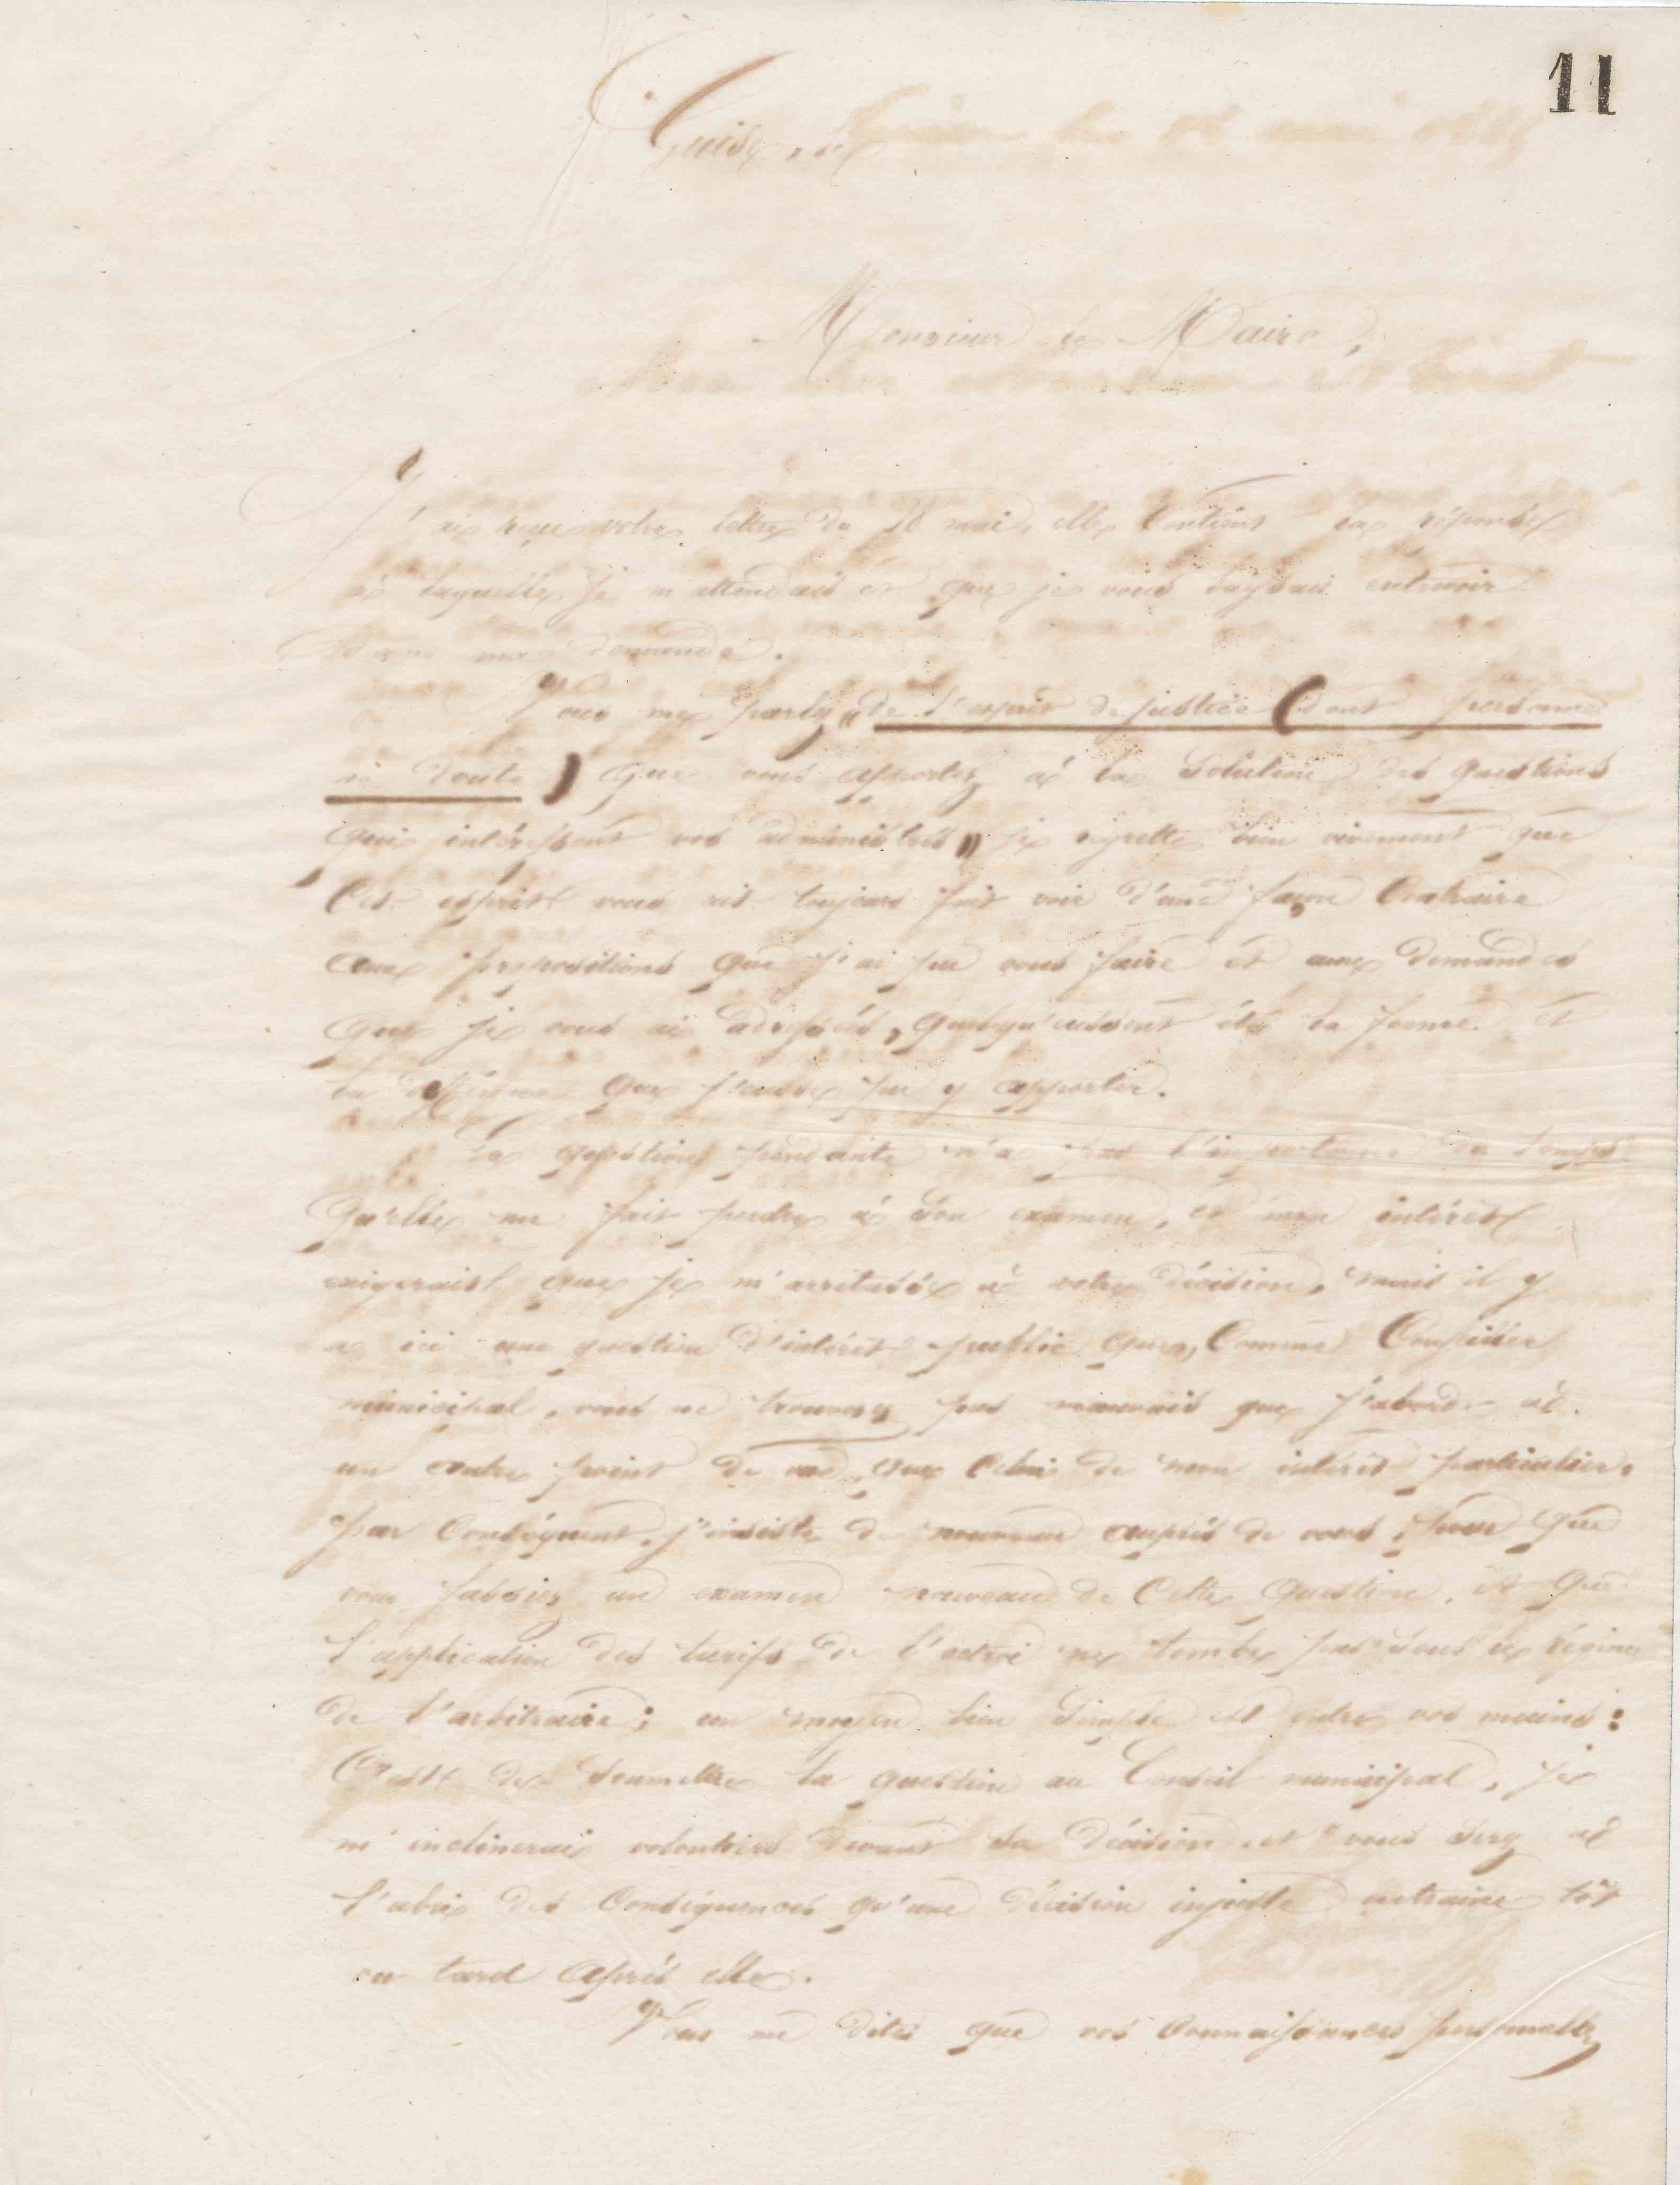 11
Guise, le
Monsieur le Maire,
J'ai reçu votre lettre du 18 mai, elle contient la réponse
à laquelle je m'attendais et que je vous laissais entrevoir
dans ma demande.
Vous me parlez "de l'esprit de justice (dont personne
ne doute) que vous apportez à la solution des questions
qui intéressent vos administrés" je regrette bien vivement que
cet esprit vous ait toujours fait voir d'une façon contraire
aux propositions que j'ai pu vous faire et aux demandes
que je vous ai adressées, quelqu'eussent été la forme et
la que j'eusse pu y apporter.
La question pendante n'a pas l'importance du temps
qu'elle me fait perdre à son examen, et mon intérêt
exigerait que je m'arrêtasse à votre décision, mais il y
a ici une question d'intérêt public que, comme Conseiller
municipal, vous ne trouverez pas mauvais que j'aborde à
un autre point de vue que celui de mon intérêt particulier.
Par conséquent, j'insiste de nouveau auprès de vous, pour que
vous fassiez un examen nouveau de cette question, et que
l'application des tarifs de l'octroi ne tombe pas sous le régime
de l'arbitraire; un moyen bien simple est entre vos mains:
C'est de soumettre la question au Conseil municipal, je
m'inclinerai volontiers devant sa décision et vous serez à
l'abri des conséquences qu'une décision injuste entraine tôt
ou tard après elle.
Vous me dites que vos connaissances personnelles